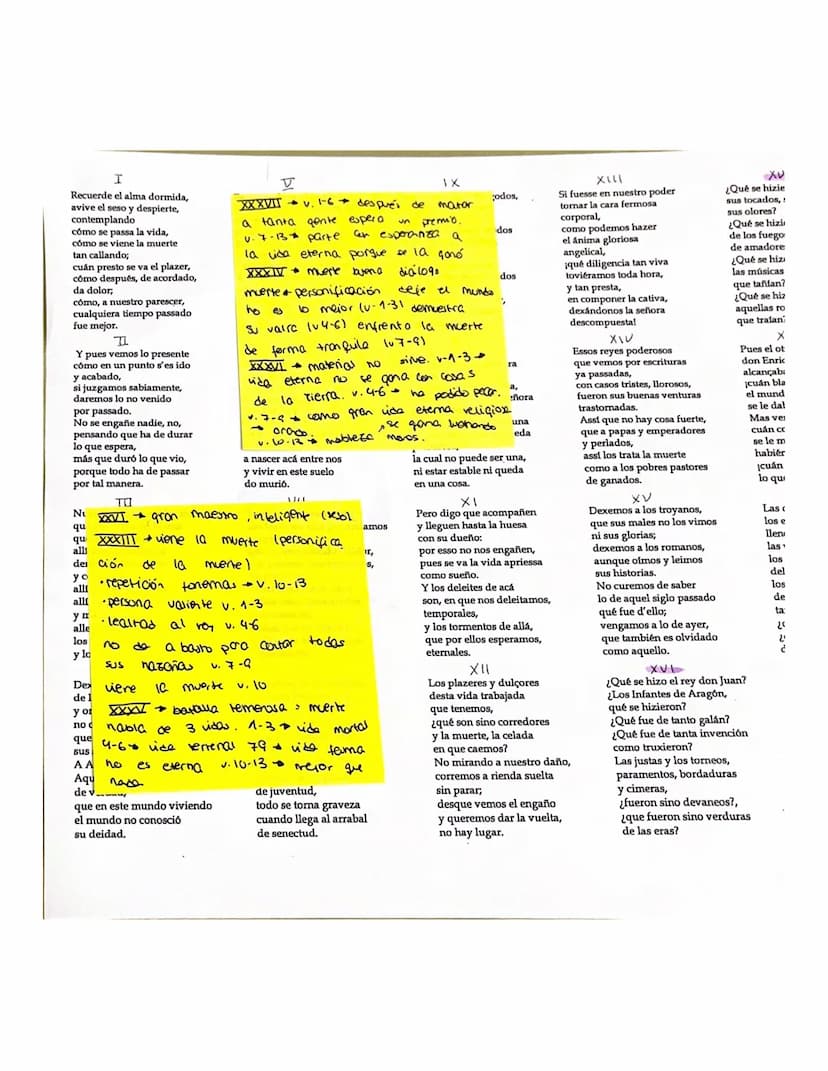 I
Recuerde el alma dormida,
avive el seso y despierte,
contemplando
cómo se passa la vida,
cómo se viene la muerte
tan callando;
cuán presto se va el plazer,
cómo después, de acordado,
da dolor;
cómo, a nuestro parescer,
cualquiera tiempo passado
fue mejor.
II
Y pues vemos lo presente
cómo en un punto s'es ido
y acabado,
si juzgamos sabiamente,
daremos lo no venido
por passado.
No se engañe nadie, no,
pensando que ha de durar
lo que espera,
más que duró lo que vio,
porque todo ha de passar
por tal manera.
III
allí
allí
y
los
y
XXVI → gran maestro, inteligent
XXXIII → viene la muerte (personifica
ción de la muerte)
• repetición fonemas → v. 10-13
• persona valiente v. 1-3
• lealtad al rey v. 4-6
no da a basto para contar todas
sus hazañas v. 7-9
viene la muerte v. 10
XXXV → batalla temerosa = muerte
habla de 3 vidas. 1-3 → vida mortal
4-6 → vida terrenal 79 → vida fama
no es eterna v. 10-13 → mejor que
nada
que en este mundo viviendo
el mundo no conosció
su deidad.
V
XXXVII → v. 1-6 → después de matar
a tanta gente espera un premio.
v. 7-13 → parte con esperanza a
la vida eterna porque se la ganó
XXXIV → muerte buena diálogo
muerte → personificación deje el mundo
no es lo mejor (v. 1-3) demuestra
su valía (v 4-6) enfrenta la muerte
de forma tranquila (v 7-9)
XXXVI → materias no sirve. v. 1-3 →
vida eterna no se gana con cosas
de la tierra. v. 4-6 → ha podido pecar.
v. 7-9 → como gran vida eterna religiosa
→ orado → se gana luchando
v. 10-13 → nobleza moros.
a nascer acá entre nos
y vivir en este suelo
do murió.
amos
de juventud,
todo se torna graveza
cuando llega al arrabal
de senectud.
IX
odos,
dos
dos
ra
a,
eñora
una
eda
la cual no puede ser una,
ni estar estable ni queda
en una cosa.
XI
Pero digo que acompañen
y lleguen hasta la huesa
con su dueño:
por esso no nos engañen,
pues se va la vida apriessa
como sueño.
Y los deleites de acá
son, en que nos deleitamos,
temporales,
y los tormentos de allá,
que por ellos esperamos,
eternales.
XII
Los plazeres y dulçores
desta vida trabajada
que tenemos,
¿qué son sino corredores
y la muerte, la celada
en que caemos?
No mirando a nuestro daño,
corremos a rienda suelta
sin parar;
desque vemos el engaño
y queremos dar la vuelta,
no hay lugar.
XIII
Si fuesse en nuestro poder
tornar la cara fermosa
corporal,
como podemos hazer
el ánima gloriosa
angelical,
¡qué diligencia tan viva
toviéramos toda hora,
y tan presta,
en componer la cativa,
dexándonos la señora
descompuesta!
XIV
Essos reyes poderosos
que vemos por escrituras
ya passadas,
con casos tristes, llorosos,
fueron sus buenas venturas
trastornadas.
Assí que no hay cosa fuerte,
que a papas y emperadores
y perlados,
assí los trata la muerte
como a los pobres pastores
de ganados.
XV
Dexemos a los troyanos,
que sus males no los vimos
ni sus glorias;
dexemos a los romanos,
aunque oímos y leímos
sus historias.
No curemos de saber
lo de aquel siglo passado
qué fue d'ello;
vengamos a lo de ayer,
que también es olvidado
como aquello.
XVI
¿Qué se hizo el rey don Juan?
¿Los Infantes de Aragón,
qué se hizieron?
¿Qué fue de tanto galán?
¿Qué fue de tanta invención
como truxieron?
Las justas y los torneos,
paramentos, bordaduras
y cimeras,
¿fueron sino devaneos?,
¿que fueron sino verduras
de las eras?
XV
¿Qué se hizie
sus tocados,
sus olores?
¿Qué se hizi
de los fuego
de amadore
¿Qué se hiz
las músicas
que tañían?
¿Qué se hiz
aquellas ro
que traían
X
Pues el ot
don Enric
alcançaba
¡cuán bla
el mund
se le dal
Mas ver
cuán co
se le m
habiér
¡cuán
lo que
Las
los e
llen
las
los
del
los
de
ta